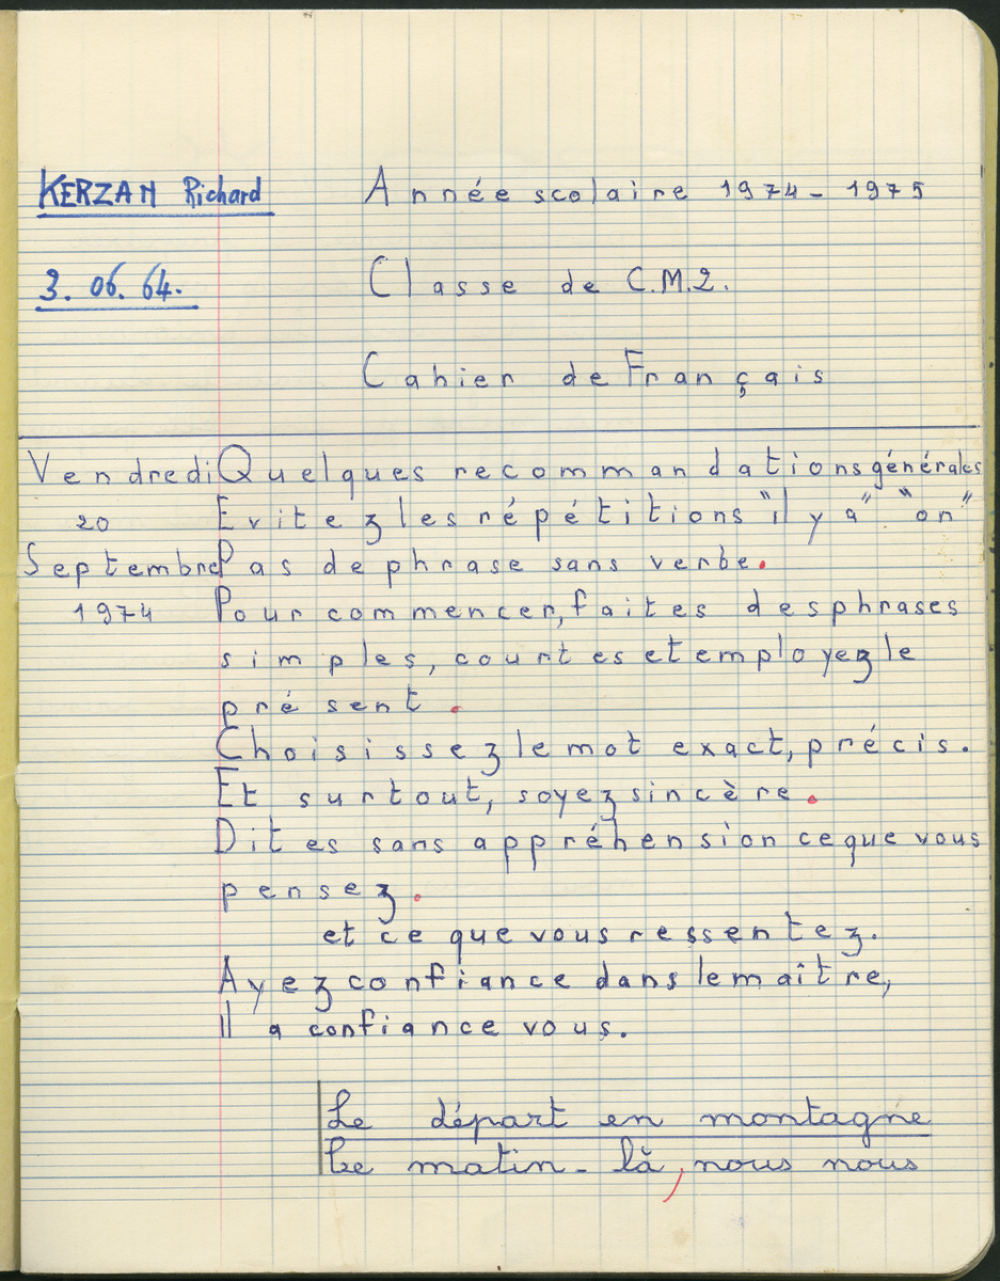 KERZAN Richard Année scolaire 1974 - 1975
3. 06. 64. Classe de C.M.2.
Cahier de Français
Vendredi Quelques recommandations générales
20 Evitez les répétitions "il y a" "on"
Septembre Pas de phrase sans verbe.
1974 Pour commencer, faites des phrases
simples, courtes et employez le
présent.
Choisissez le mot exact, précis.
Et surtout, soyez sincère.
Dites sans appréhension ce que vous
pensez.
et ce que vous ressentez.
Ayez confiance dans le maître,
Il a confiance vous.
Le départ en montagne
Ce matin-là, nous nous